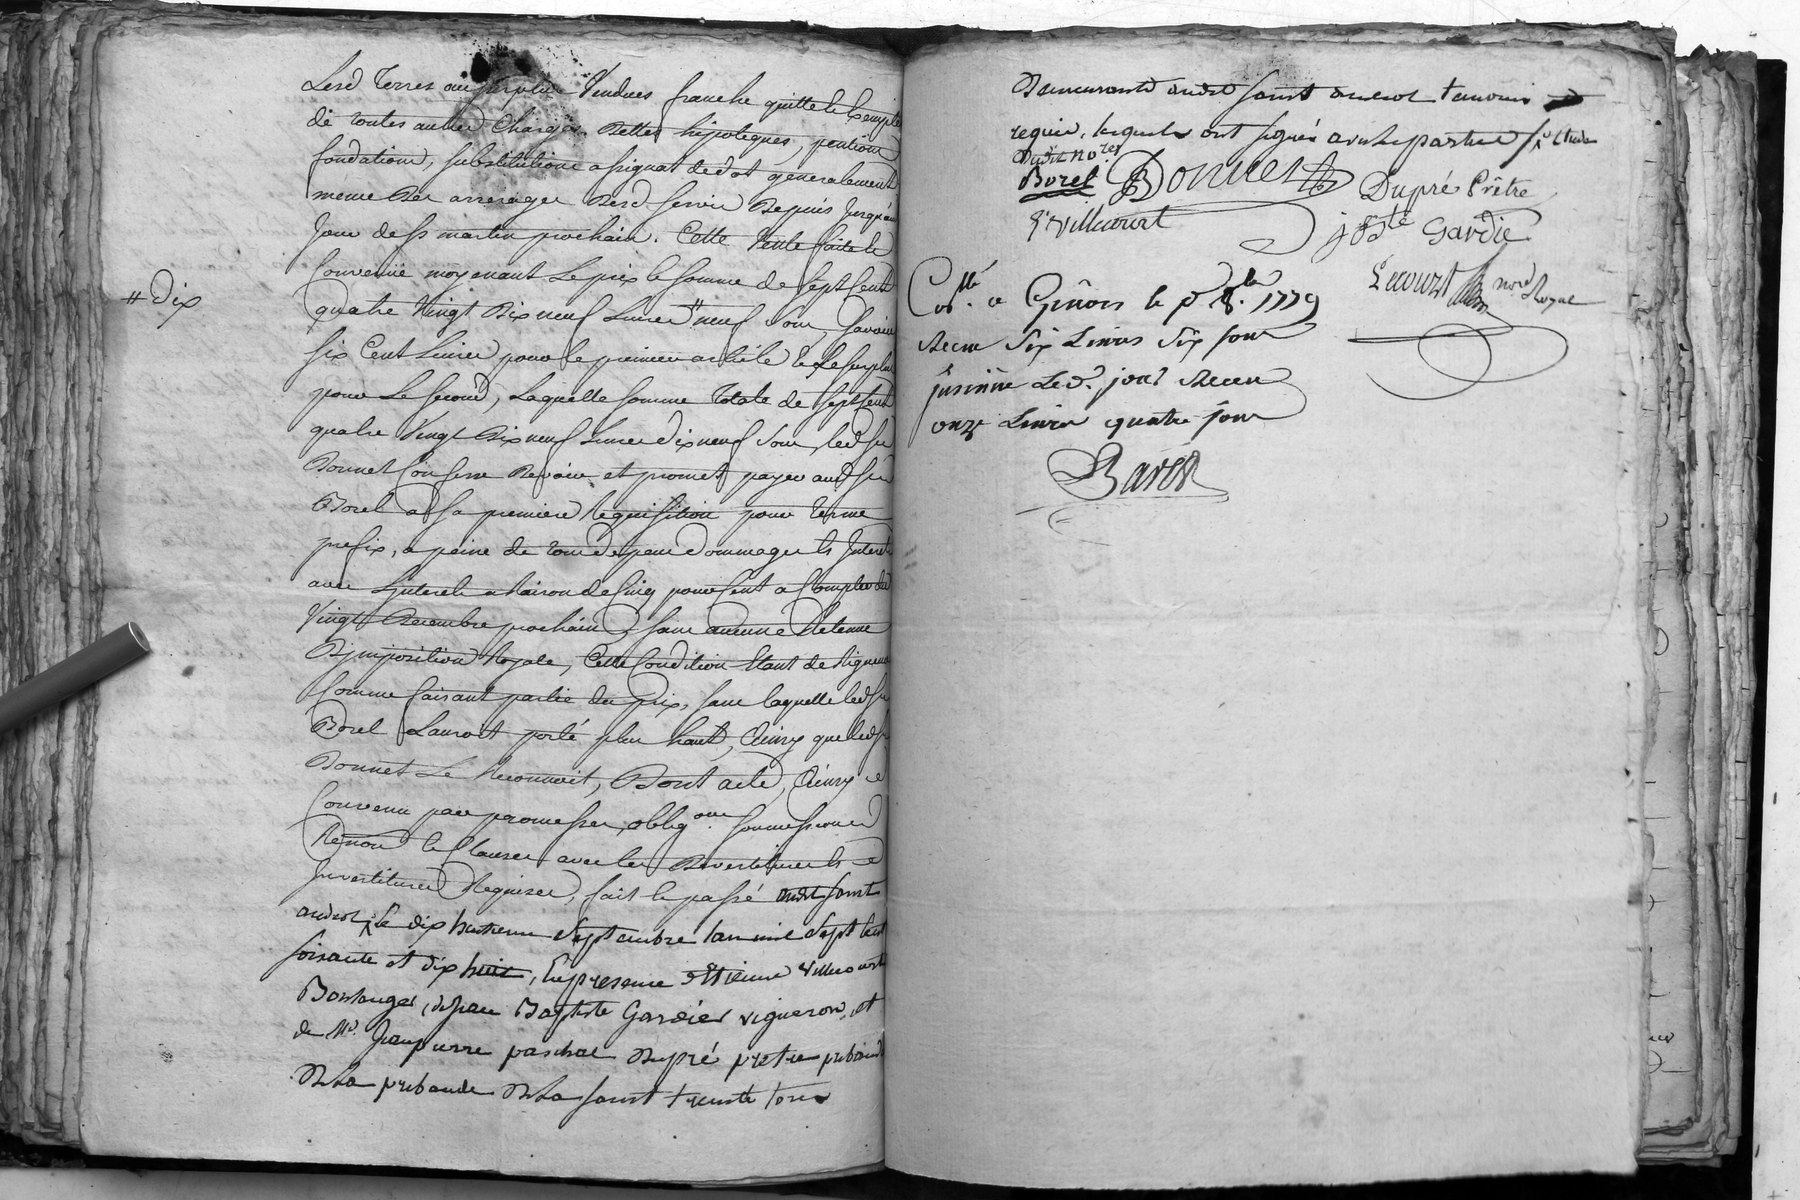 Lesd terres au surplus Vendues franche quitte & Exempte
de toutes autres Charges Dettes hipoteques, pentions
fondations, substitutions assignat de dot generalement
meme des arrerages desd servis Depuis Jusqu'au
Jour de st martin prochain. Cette Vente faite &
Convenüe moyenant Le prix & somme de Sept Cent
// Dix
quatre Vingt Dix neuf Livres // neuf sous, savoir
six Cent Livres pour le premier article & Le surplus
pour Le second, Laquelle somme totale de Sept Cent
quatre Vingt Dix neuf Livres dix neuf sous led sr
Bonnet Confesse Devoir et promet payer aud sr
Borel a sa premiere requisition pour terme
prefix, a peine de tous depens dommages & Interets
avec Interets a Raison de Cinq pour Cent a Compter du
Vingt Decembre prochain, sans aucune Retenue
D'imposition Royale, Cette Condition Etant de Rigueur
Comme faisant partie du Prix, sans laquelle led sr
Borel L'auroit porté plus haut, Ainsy que led sr
Bonnet Le Reconnoit, Dont acte, Ainsy
Convenu par promesses, obligons soumissions
Renon & Clauses avec les Devertitures &
Investitures Requises, fait & passé audit Saint
andeol, Le dix huitieme Septembre l'an mil Sept Cent
soixante et dix huit, En presence d'Etienne Villecourt
Boulanger, de Jean Baptiste Gardier vigneron, et
de Mr. Jean pierre paschal Dupré pretre prebandé
De La prebande De La saint trinité tous
Demeurants audit saint andeol temoins
requis, lesquels ont signés avec les parties Etude
Dudit nore
Borel
Bonnet
Dupré Prêtre
E. Villecourt
jbste Gardie
Lecourt nore Royal
Collé. a le 8.bre 1779
Recu Six Livres Six sous
jnsinüe Led. jour Recu
onze Livres quatre sous